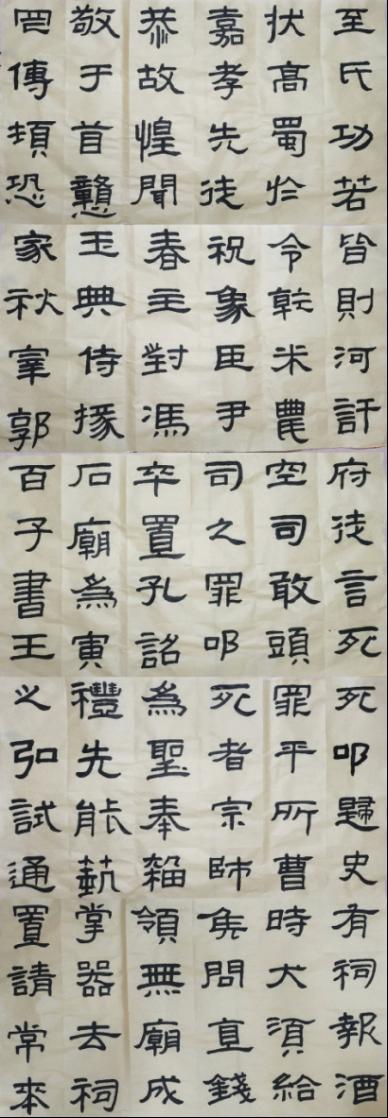 至氏功若皆則河訐府徒言死死叩歸史有祠報酒
伏高蜀於令乾米農空司敢頭罪平所曹時犬須給
嘉孝先徒祝象臣尹司之罪叩死者宗師侯問直錢
恭故惶聞春主對馮卒置孔詔為聖奉雜領無廟成
敬于首戇玉典侍掾石廟為寅禮先能藝掌器去祠
傳頓恐家秋宰郭百子書王之弘試通置請常來